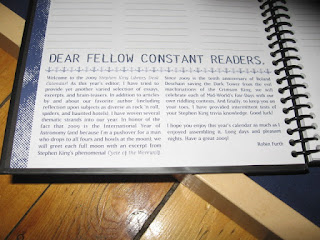 DEAR FELLOW CONSTANT READERS,
Welcome to the 2009 Stephen King Library Desk
Calendar! As this year's editor, I have tried to
provide yet another varied selection of essays,
excerpts, and brain-teasers. In addition to articles
by and about our favorite author (including
reflections upon subjects as diverse as rock 'n roll,
spiders, and haunted hotels), I have woven several
thematic strands into our year. In honor of the
fact that 2009 is the International Year of
Astronomy (and because I'm a pushover for a man
who drops to all fours and howls at the moon), we
will greet each full moon with an excerpt from
Stephen King's phenomenal Cycle of the Werewolf.
Since 2009 is the tenth anniversary of Roland
Deschain saving the Dark Tower from the evil
machinations of the Crimson King, we will
celebrate each of Mid-World's Fair Days with our
own riddling contests. And finally, to keep you on
your toes, I have provided intermittent tests of
your Stephen King trivia knowledge. Good luck!
I hope you enjoy this year's calendar as much as I
enjoyed assembling it. Long days and pleasant
nights. Have a great 2009!
Robin Furth